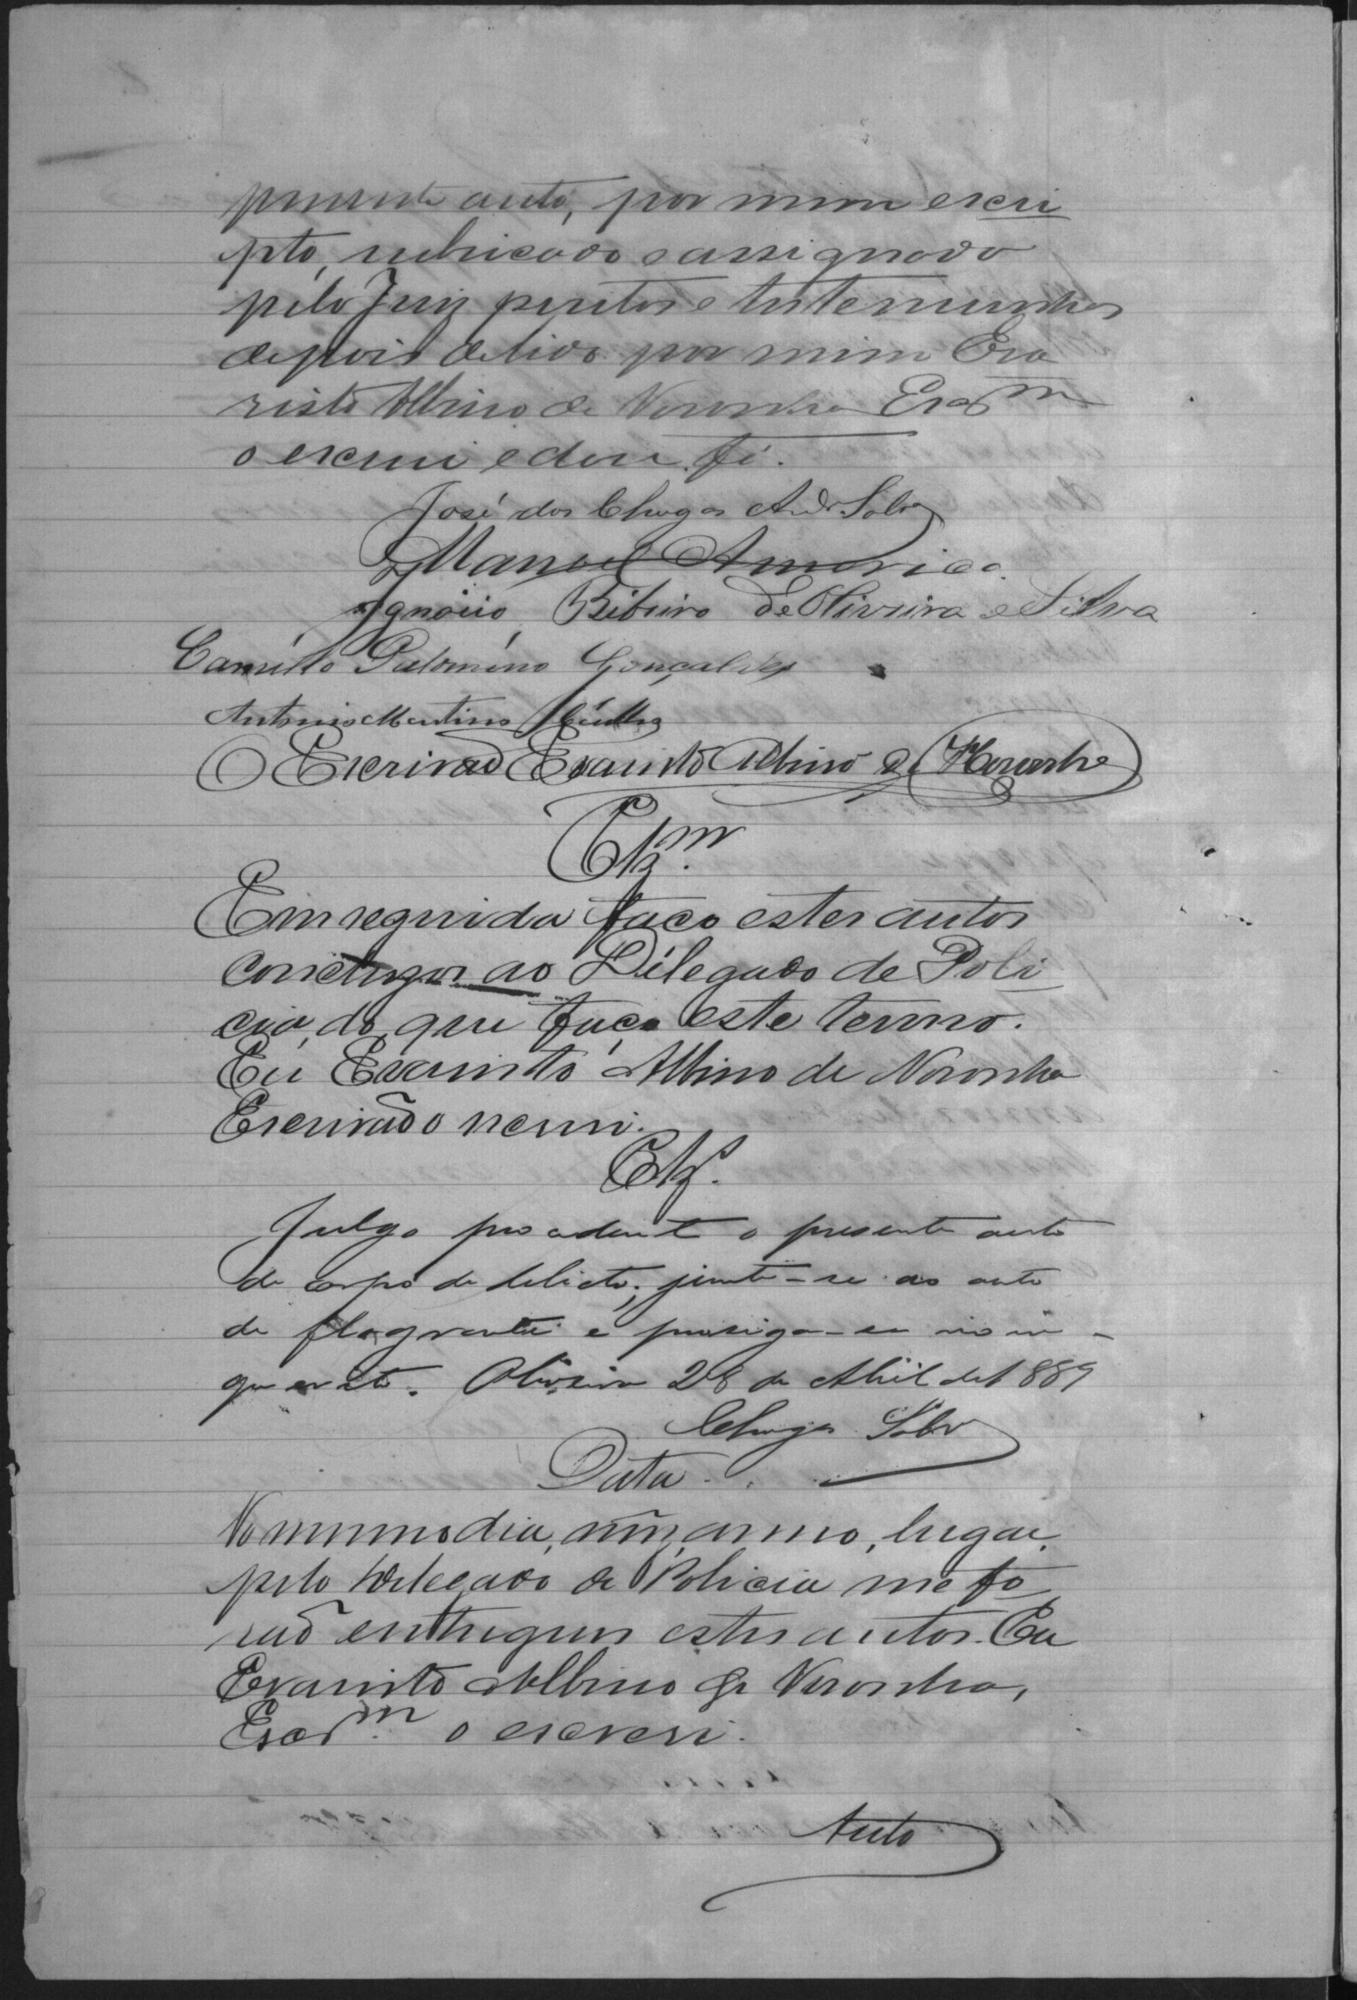 presente auto, por mim escri
pto, rubricado e assignado
pelo Juiz peritos e testemunhas
depois de lido por mim Eva
risto Albino de Noronha Escrm
o escrevi e dou fé.
José das Chagas Andr. Sobro
Manoel Americo
Ignacio Ribeiro de Oliveira e Silva
Camillo Palomino Gonçalves
Antonio Martins
O Escrivão Evaristo Albino de Noronha
Clzm.
Em seguida faço estes autos
conclusos ao Délegado de Poli
cia, do que faço este termo.
Eu Evaristo Albino de Noronha
Escrivão o escrevi.
Clzs.
Julgo procedente o presente auto
de corpo de delicto; junte-se ao auto
de flagrante e prosiga-se no in-
querito. Oliveira 28 de Abril de 1889
Chagas Sobro
Data.
No mesmo dia, mez, anno, lugar,
pelo Delegado de Policia me fo
rão entregues estes autos. Eu
Evaristo Albino de Noronha,
Escrm. o escrevi.
Auto